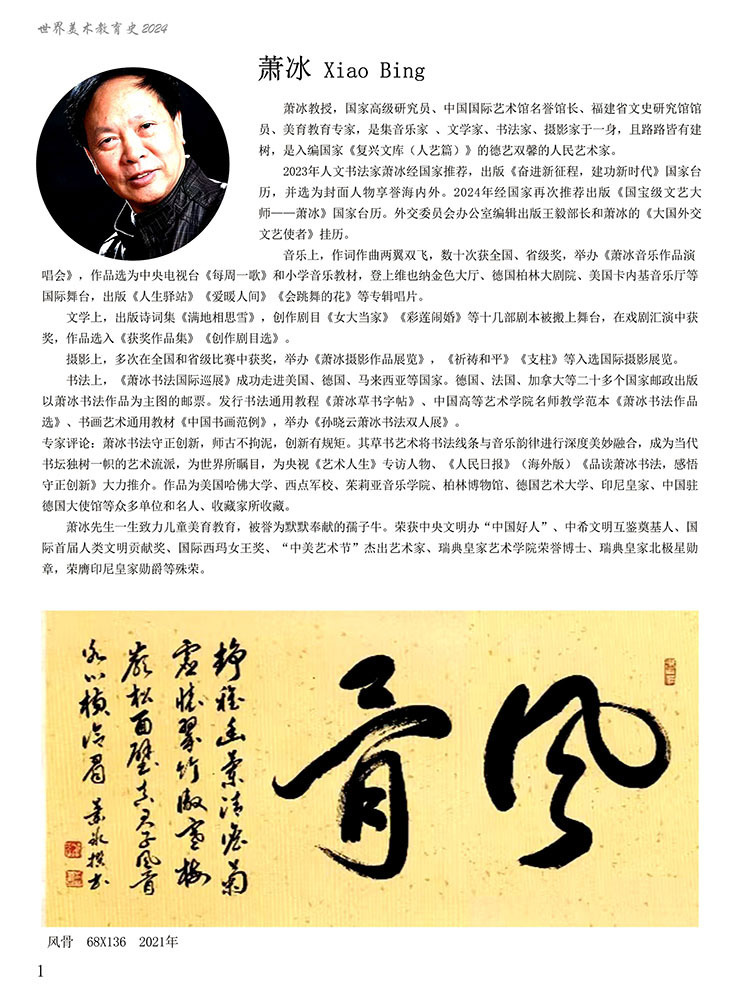 世界美术教育史2024
萧冰 Xiao Bing
萧冰教授，国家高级研究员、中国国际艺术馆名誉馆长、福建省文史研究馆馆
员、美育教育专家，是集音乐家 、文学家、书法家、摄影家于一身，且路路皆有建
树，是入编国家《复兴文库（人艺篇）》的德艺双馨的人民艺术家。
2023年人文书法家萧冰经国家推荐，出版《奋进新征程，建功新时代》国家台
历，并选为封面人物享誉海内外。2024年经国家再次推荐出版《国宝级文艺大
师——萧冰》国家台历。外交委员会办公室编辑出版王毅部长和萧冰的《大国外交
文艺使者》挂历。
音乐上，作词作曲两翼双飞，数十次获全国、省级奖，举办《萧冰音乐作品演
唱会》，作品选为中央电视台《每周一歌》和小学音乐教材，登上维也纳金色大厅、德国柏林大剧院、美国卡内基音乐厅等
国际舞台，出版《人生驿站》《爱暖人间》《会跳舞的花》等专辑唱片。
文学上，出版诗词集《满地相思雪》，创作剧目《女大当家》《彩莲闹婚》等十几部剧本被搬上舞台，在戏剧汇演中获
奖，作品选入《获奖作品集》《创作剧目选》。
摄影上，多次在全国和省级比赛中获奖，举办《萧冰摄影作品展览》，《祈祷和平》《支柱》等入选国际摄影展览。
书法上，《萧冰书法国际巡展》成功走进美国、德国、马来西亚等国家。德国、法国、加拿大等二十多个国家邮政出版
以萧冰书法作品为主图的邮票。发行书法通用教程《萧冰草书字帖》、中国高等艺术学院名师教学范本《萧冰书法作品
选》、书画艺术通用教材《中国书画范例》，举办《孙晓云萧冰书法双人展》。
专家评论：萧冰书法守正创新，师古不拘泥，创新有规矩。其草书艺术将书法线条与音乐韵律进行深度美妙融合，成为当代
书坛独树一帜的艺术流派，为世界所瞩目，为央视《艺术人生》专访人物、《人民日报》（海外版）《品读萧冰书法，感悟
守正创新》大力推介。作品为美国哈佛大学、西点军校、茱莉亚音乐学院、柏林博物馆、德国艺术大学、印尼皇家、中国驻
德国大使馆等众多单位和名人、收藏家所收藏。
萧冰先生一生致力儿童美育教育，被誉为默默奉献的孺子牛。荣获中央文明办“中国好人”、中希文明互鉴奠基人、国
际首届人类文明贡献奖、国际西玛女王奖、“中美艺术节”杰出艺术家、瑞典皇家艺术学院荣誉博士、瑞典皇家北极星勋
章，荣膺印尼皇家勋爵等殊荣。
风骨
静雅幽兰清淡菊
虚怀翠竹傲寒梅
岩松面壁真君子风骨
萧冰撰书
风骨 68X136 2021年
1